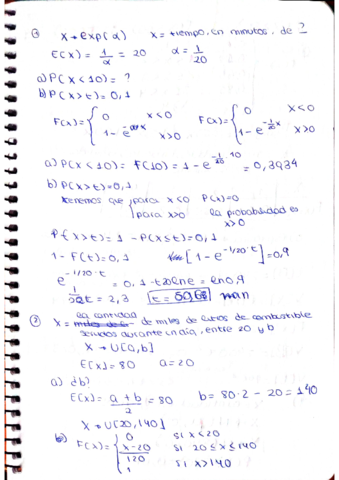 ① X → exp(α) X = tiempo, en minutos, de ?
E(X) = 1/α = 20 α = 1/20
a) P(X < 10) = ?
b) P(X > t) = 0,1
F(x) = { 0 x < 0
1 - e^-αx x > 0
F(x) = { 0 x < 0
1 - e^-1/20 x x > 0
a) P(X < 10) = F(10) = 1 - e^-1/20 · 10 = 0,3934
b) P(X > t) = 0,1
tenemos que { para x < 0 P(x) = 0
para x > 0 la probabilidad es
x > 0
P(X > t) = 1 - P(X ≤ t) = 0,1
1 - F(t) = 0,1 [1 - e^-1/20 t] = 0,9
e^-1/20 · t = 0,1 = ln 0,9
t = 2,3 min
② X = la cantidad de miles de litros de combustible
durante un día, entre 20 y b
X → U[a,b]
E(X) = 80 a = 20
a) ¿b?
E(X) = a + b / 2 = 80 b = 80 · 2 - 20 = 140
X → U[20,140]
b) F(x) = { 0 si x < 20
x - 20 / 120 si 20 ≤ x ≤ 140
1 si x > 140